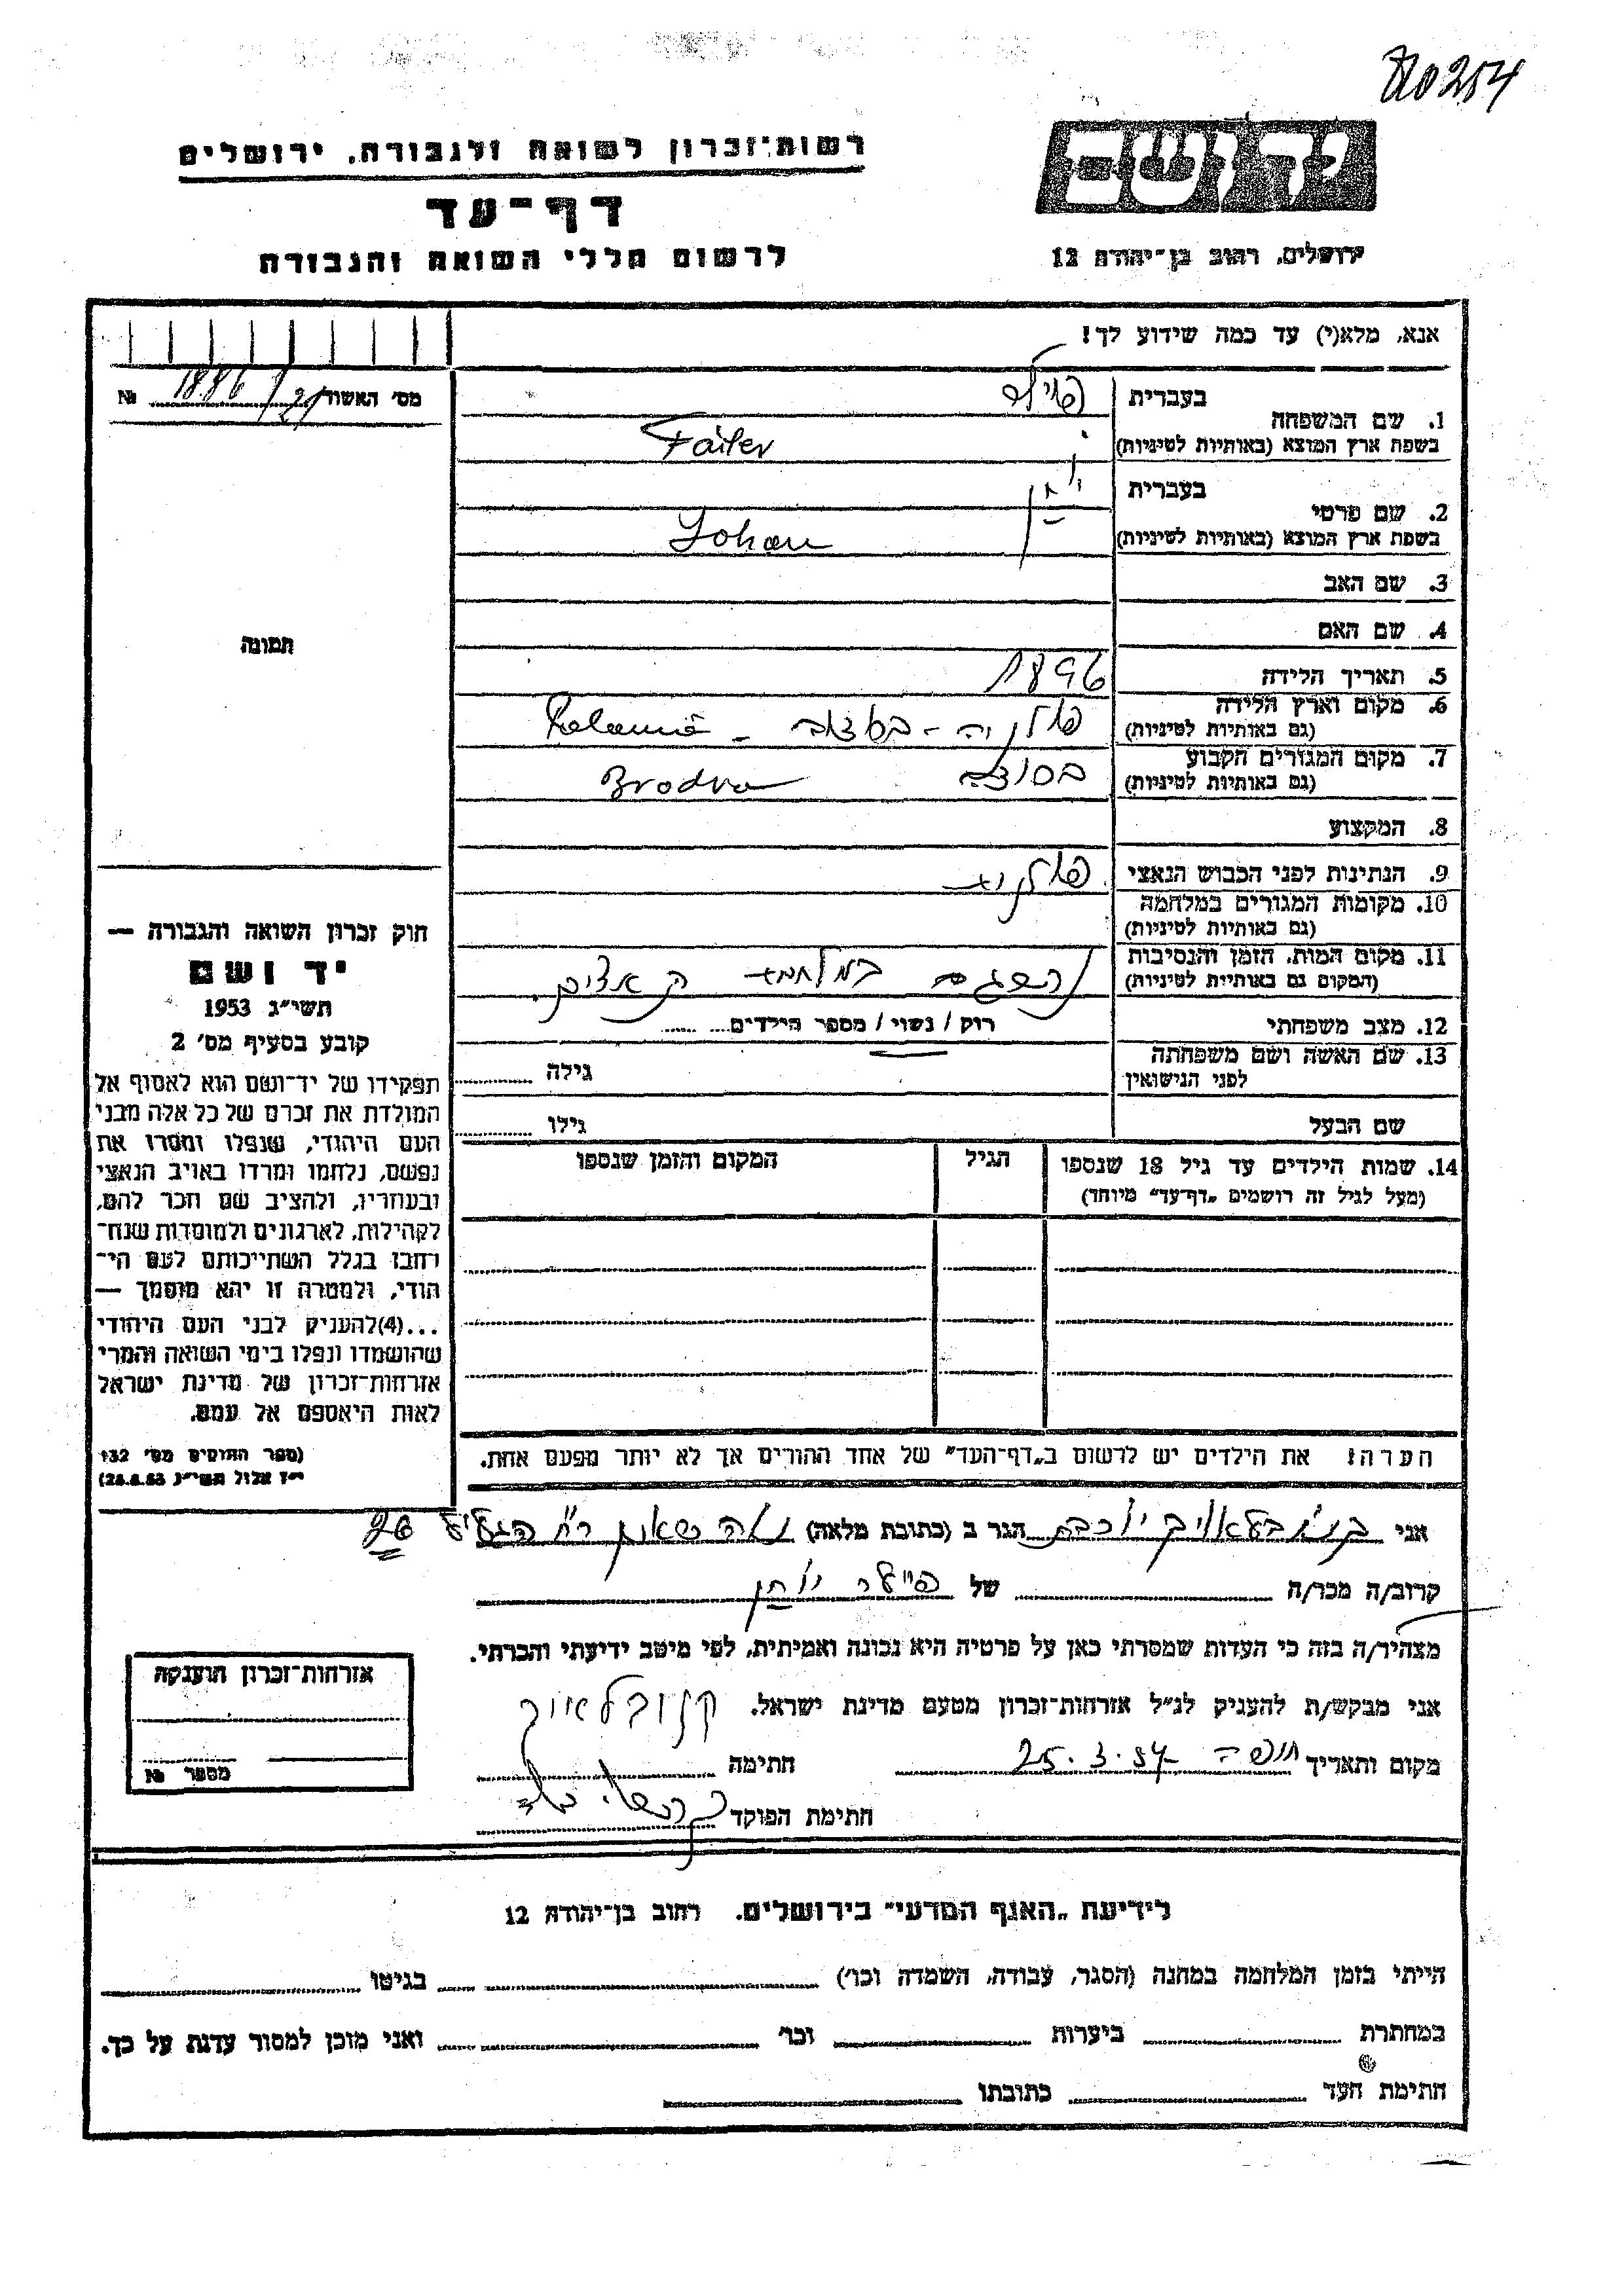 רשות־זכרון לשואה ולגבורה, ירושלים
דף־עד
לרשום חללי השואה והגבורה
יד ושם
ירושלים, רחוב בן־יהודה 12
אנא, מלא(י) עד כמה שידוע לך!
מס' האשור 1886/21 №
1. שם המשפחה
בעברית
בשפת ארץ המוצא (באותיות לטיניות) Failer
2. שם פרטי
בעברית יוחן
בשפת ארץ המוצא (באותיות לטיניות) Johan
3. שם האב
4. שם האם
5. תאריך הלידה 1896
6. מקום וארץ הלידה
(גם באותיות לטיניות)
7. מקום המגורים הקבוע
(גם באותיות לטיניות)
8. המקצוע
9. הנתינות לפני הכבוש הנאצי
10. מקומות המגורים במלחמה
(גם באותיות לטיניות)
11. מקום המות, הזמן והנסיבות
(המקום גם באותיות לטיניות)
12. מצב משפחתי רוק / נשוי / מספר הילדים
13. שם האשה ושם משפחתה גילה
לפני הנישואין
שם הבעל גילו
14. שמות הילדים עד גיל 18 שנספו הגיל המקום והזמן שנספו
(מעל לגיל זה רושמים „דף־עד" מיוחד)
הערה! את הילדים יש לרשום ב„דף־העד" של אחד ההורים אך לא יותר מפעם אחת.
תמונה
חוק זכרון השואה והגבורה —
יד ושם
תשי"ג 1953
קובע בסעיף מס' 2
תפקידו של יד־ושם הוא לאסוף אל
המולדת את זכרם של כל אלה מבני
העם היהודי, שנפלו ומסרו את
נפשם, נלחמו ומרדו באויב הנאצי
ובעוזריו, ולהציב שם וזכר להם,
לקהילות, לארגונים ולמוסדות שנח־
רבו בגלל השתייכותם לעם הי־
הודי, ולמטרה זו יהא מוסמך —
...(4)להעניק לבני העם היהודי
שהושמדו ונפלו בימי השואה והמרי
אזרחות־זכרון של מדינת ישראל
לאות היאספם אל עמם.
(ספר החוקים מס' 132
י"ז אלול תשי"ג 28.8.53)
אני הגר ב (כתובת מלאה)
קרוב/ה מכר/ה של פיילר יוחן
מצהיר/ה בזה כי העדות שמסרתי כאן על פרטיה היא נכונה ואמיתית, לפי מיטב ידיעתי והכרתי.
אני מבקש/ת להעניק לנ"ל אזרחות־זכרון מטעם מדינת ישראל.
מקום ותאריך חיפה 25.3.57 חתימה
חתימת הפוקד
אזרחות־זכרון הוענקה
מספר №
לידיעת „האגף המדעי" בירושלים, רחוב בן־יהודה 12
הייתי בזמן המלחמה במחנה (הסגר, עבודה, השמדה וכו') בגיטו
במחתרת ביערות וכו' ואני מוכן למסור עדות על כך.
חתימת העד כתובתו